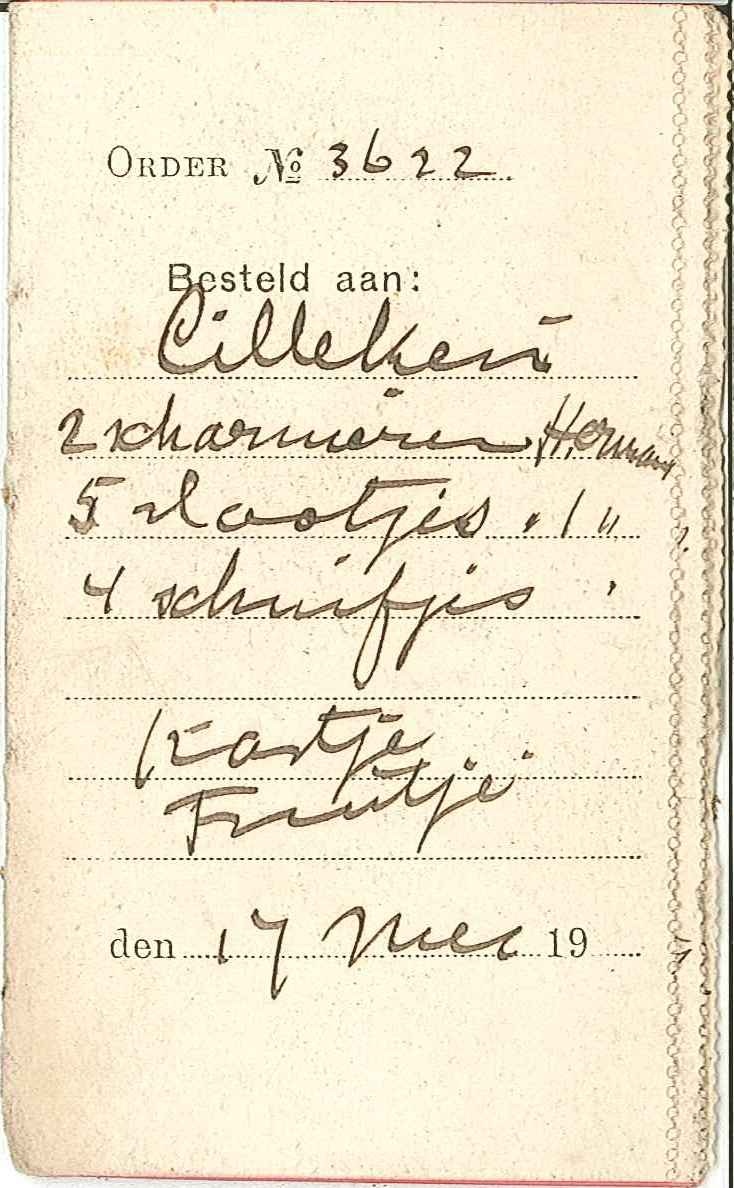 ORDER № 3622
Besteld aan:
Cilleken
2 scharnieren Herman
5 slootjes " 1 "
4 schuifjes "
Kastje
Fruitje
den 17 Mei 19